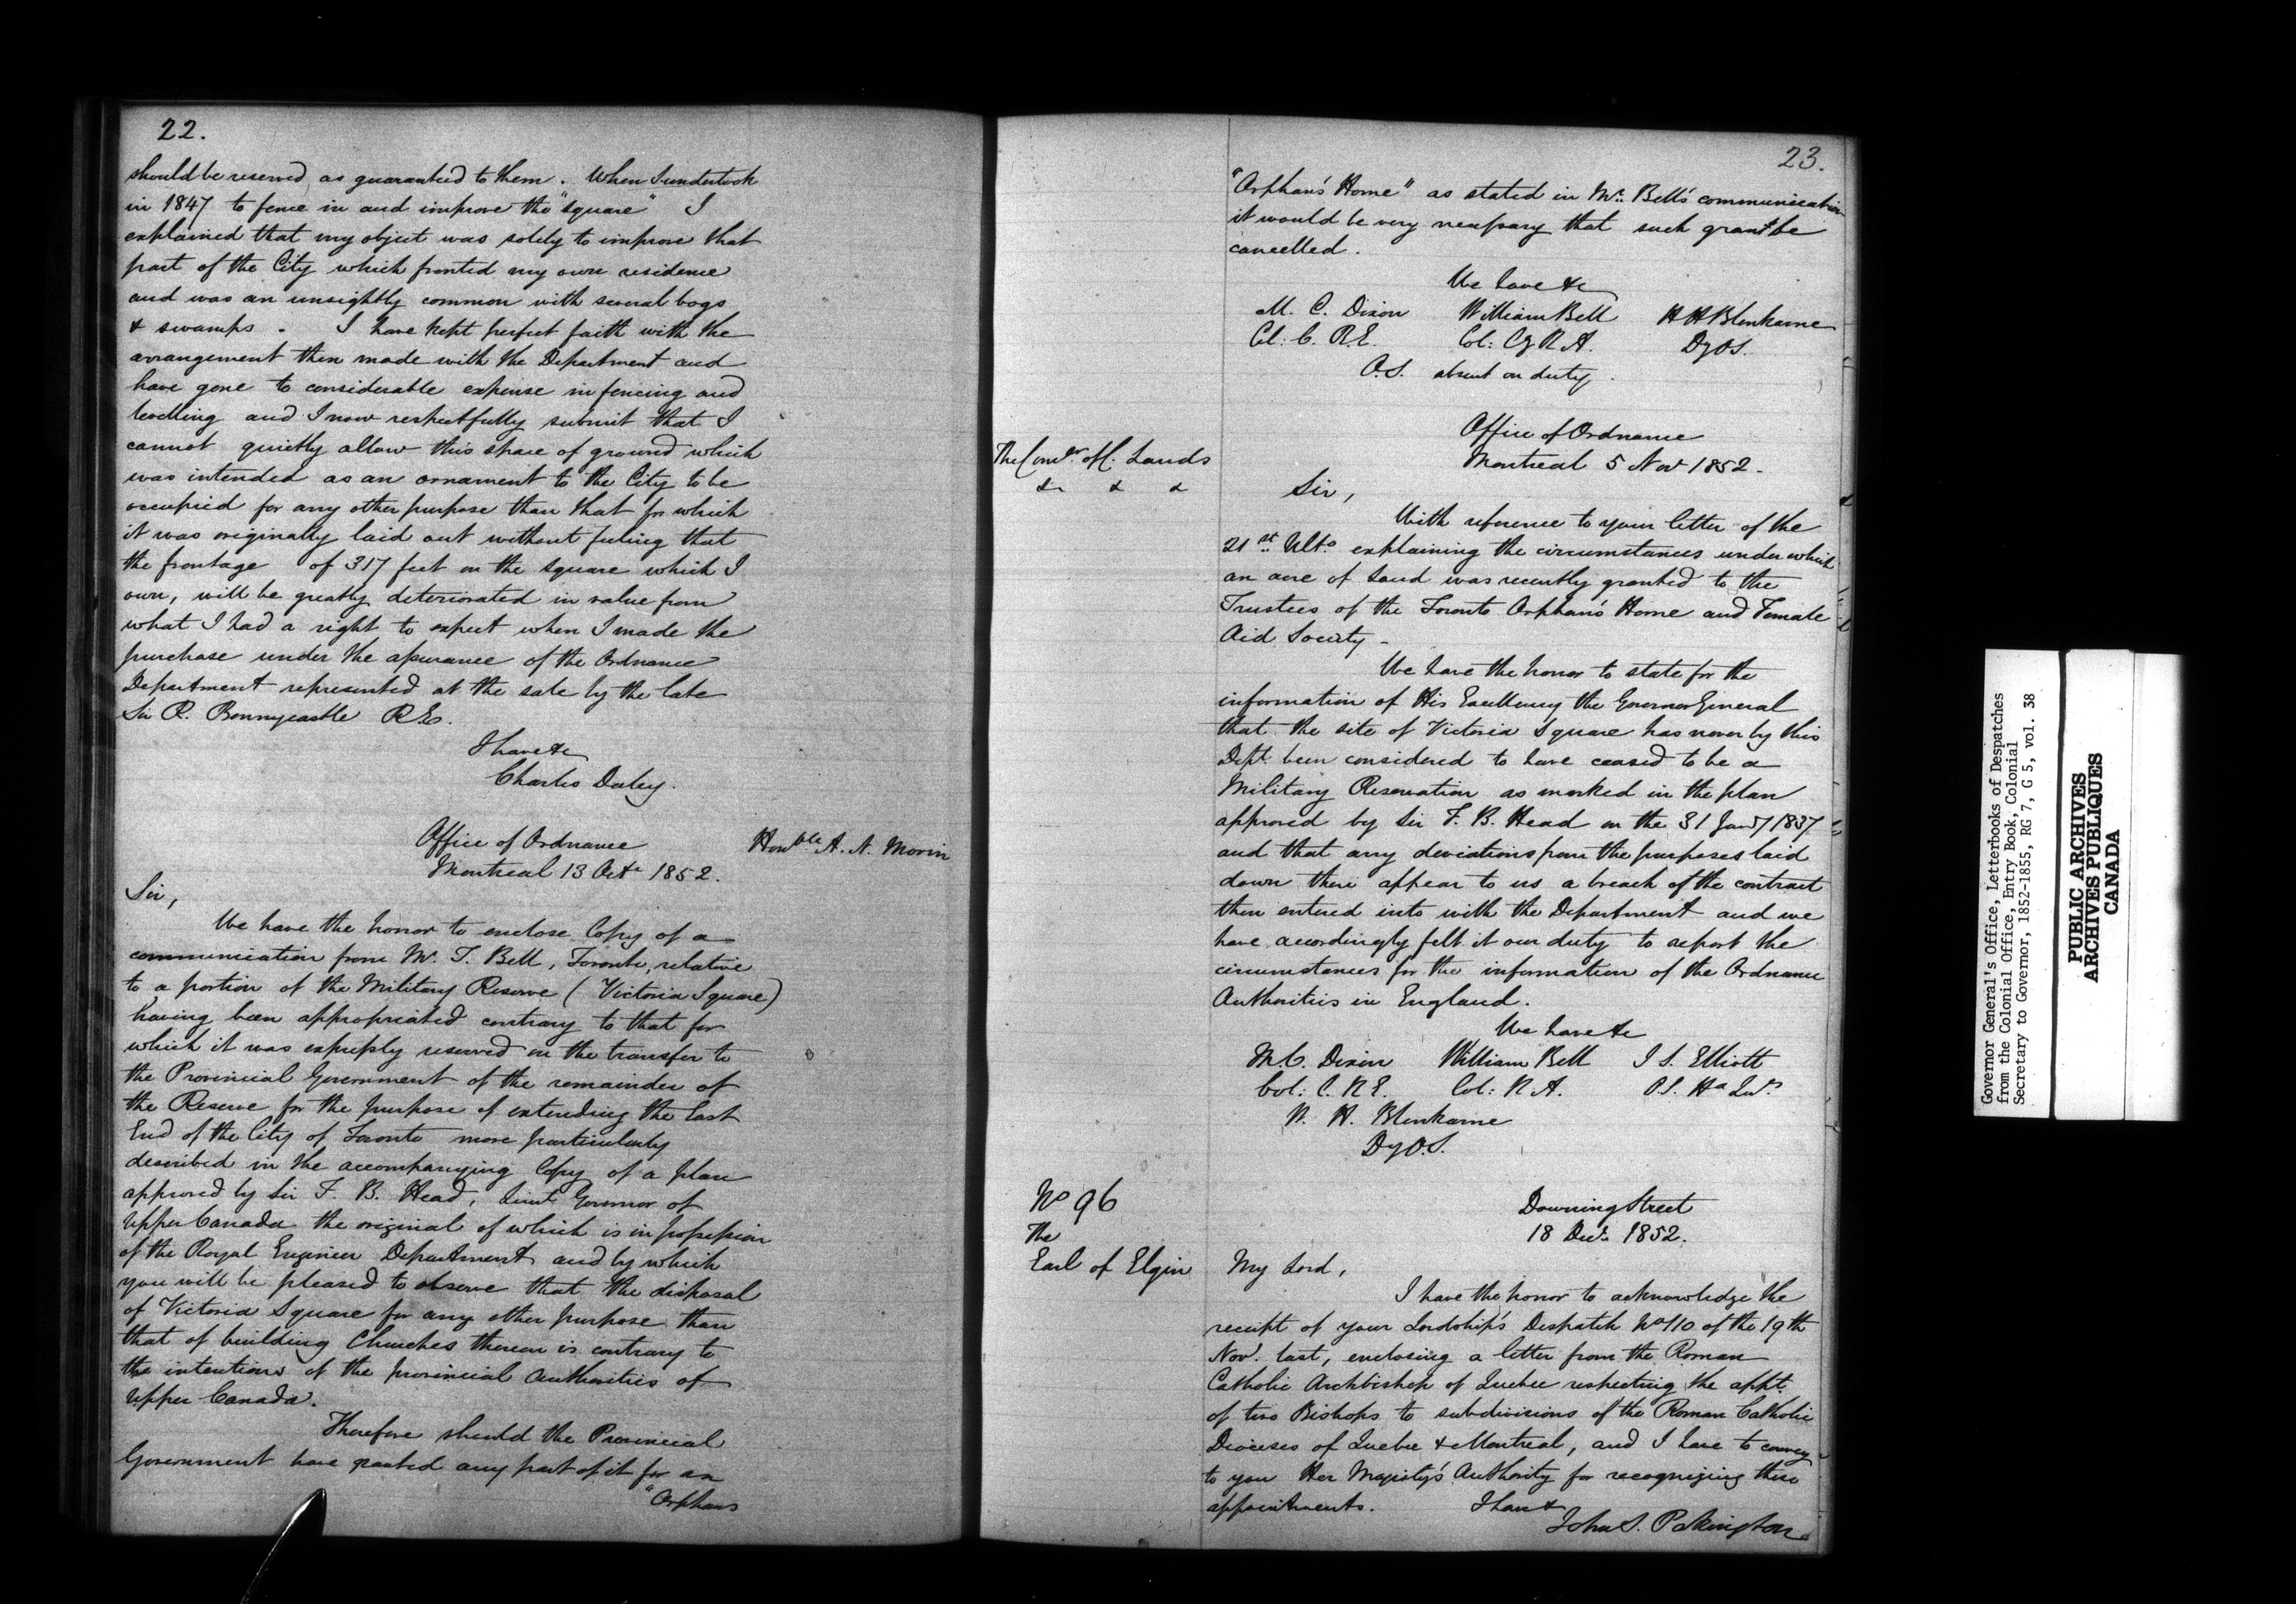 22.
should be reserved as guaranteed to them. When I undertook
in 1847 to fence in and improve the "square" I
explained that my object was solely to improve that
part of the City which fronted my own residence
and was an unsightly common with several bogs
& swamps. I have kept perfect faith with the
arrangement then made with the Department and
have gone to considerable expense in fencing and
levelling and I now respectfully submit that I
cannot quietly allow this space of ground which
was intended as an ornament to the City to be
occupied for any other purpose than that for which
it was originally laid out without feeling that
the frontage of 317 feet on the square which I
own, will be greatly deteriorated in value from
what I had a right to expect when I made the
purchase under the assurance of the Ordnance
Department represented at the sale by the late
Sir R. Bonnycastle R.E.
I have &c
Charles Daley.
Office of Ordnance
Honble A. N. Morin
Montreal 13 Octr 1852.
Sir,
We have the honor to enclose Copy of a
communication from Mr. T. Bell, Toronto, relative
to a portion of the Military Reserve (Victoria Square)
having been appropriated contrary to that for
which it was expressly reserved on the transfer to
the Provincial Government of the remainder of
the Reserve for the purpose of extending the East
End of the City of Toronto more particularly
described in the accompanying Copy of a plan
approved by Sir F. B. Head, Lieut Governor of
Upper Canada the original of which is in possession
of the Royal Engineer Department and by which
you will be pleased to observe that the disposal
of Victoria Square for any other purpose than
that of building Churches thereon is contrary to
the intentions of the provincial Authorities of
Upper Canada.
Therefore should the Provincial
Government have granted any part of it for an
"Orphans
23.
"Orphan's Home" as stated in Mr. Bell's communication
it would be very necessary that such grant be
cancelled.
We have &c
M. C. Dixon William Bell H H Blenkarne
Col: C. R.E. Col: Cg R A. Dy O S.
O.S. absent on duty.
Office of Ordnance
Montreal 5 Nov 1852.
The Comr. of C. Lands
& & &
Sir,
With reference to your letter of the
21st. Ulto. explaining the circumstances under which
an acre of Land was recently granted to the
Trustees of the Toronto Orphan's Home and Female
Aid Society -
We have the honor to state for the
information of His Excellency the Governor General
that the site of Victoria Square has never by this
Dept. been considered to have ceased to be a
Military Reservation as marked in the plan
approved by Sir F. B. Head on the 31 Jany 1837
and that any deviations from the purposes laid
down there appear to us a breach of the contract
then entered into with the Department and we
have accordingly felt it our duty to report the
circumstances for the information of the Ordnance
Authorities in England.
We have &c
M. C. Dixon William Bell J S. Elliott
Col: C. R E. Col: R. A. O.S.
H. Blenkarne
Dy O.S.
No 96
The
Earl of Elgin
Downing Street
18 Decr. 1852.
My Lord,
I have the honor to acknowledge the
receipt of your Lordship's Despatch No 110 of the 19th
Nov. last, enclosing a letter from the Roman
Catholic Archbishop of Quebec respecting the appt.
of two Bishops to subdivisions of the Roman Catholic
Dioceses of Quebec & Montreal, and I have to convey
to you Her Majesty's Authority for recognizing these
appointments. I have &
John S. Pakington
Governor General's Office, Letterbooks of Despatches
from the Colonial Office, Entry Book, Colonial
Secretary to Governor, 1852-1855, RG 7, G 5, vol. 38
PUBLIC ARCHIVES
ARCHIVES PUBLIQUES
CANADA